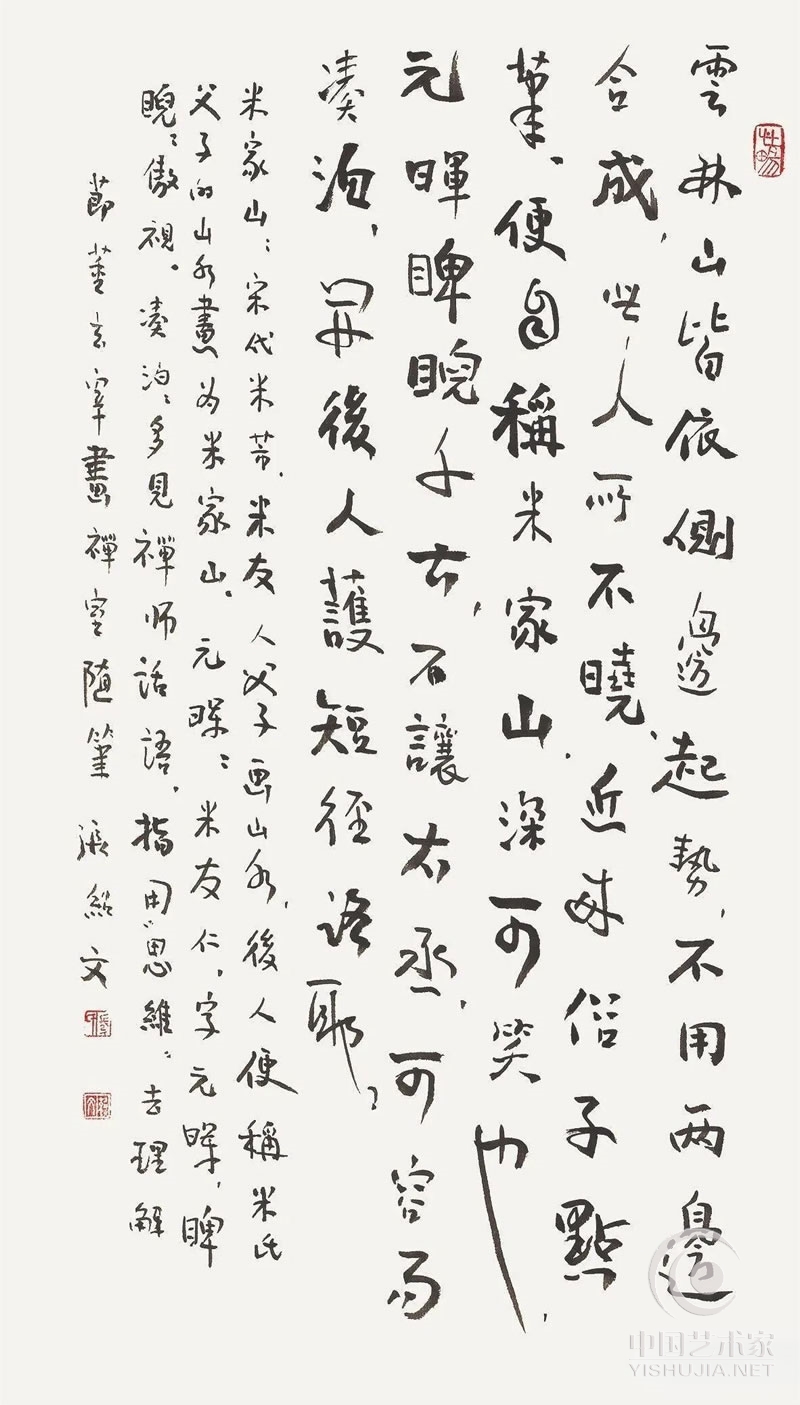 雲林山皆依側邊起勢，不用两邊
合成，此人所不曉，近来俗子點
筆，便自稱米家山，深可笑也，
元暉睥睨千古，不讓右丞，可容易
凑泊，開後人護短徑路耶？
米家山：宋代米芾，米友人父子画山水，後人便稱米氏
父子的山水畫为米家山。元暉：米友仁，字元暉，睥
睨：傲視。凑泊：多見禪师话語，指用思維：去理解
節董玄宰畫禪室随筆 張紹文
中国艺术家
YISHUJIA.NET